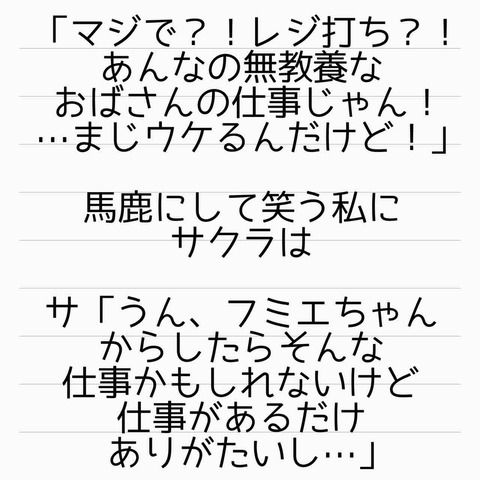 「マジで？！レジ打ち？！
あんなの無教養な
おばさんの仕事じゃん！
…まじウケるんだけど！」
馬鹿にして笑う私に
サクラは
サ「うん、フミエちゃん
からしたらそんな
仕事かもしれないけど
仕事があるだけ
ありがたいし…」